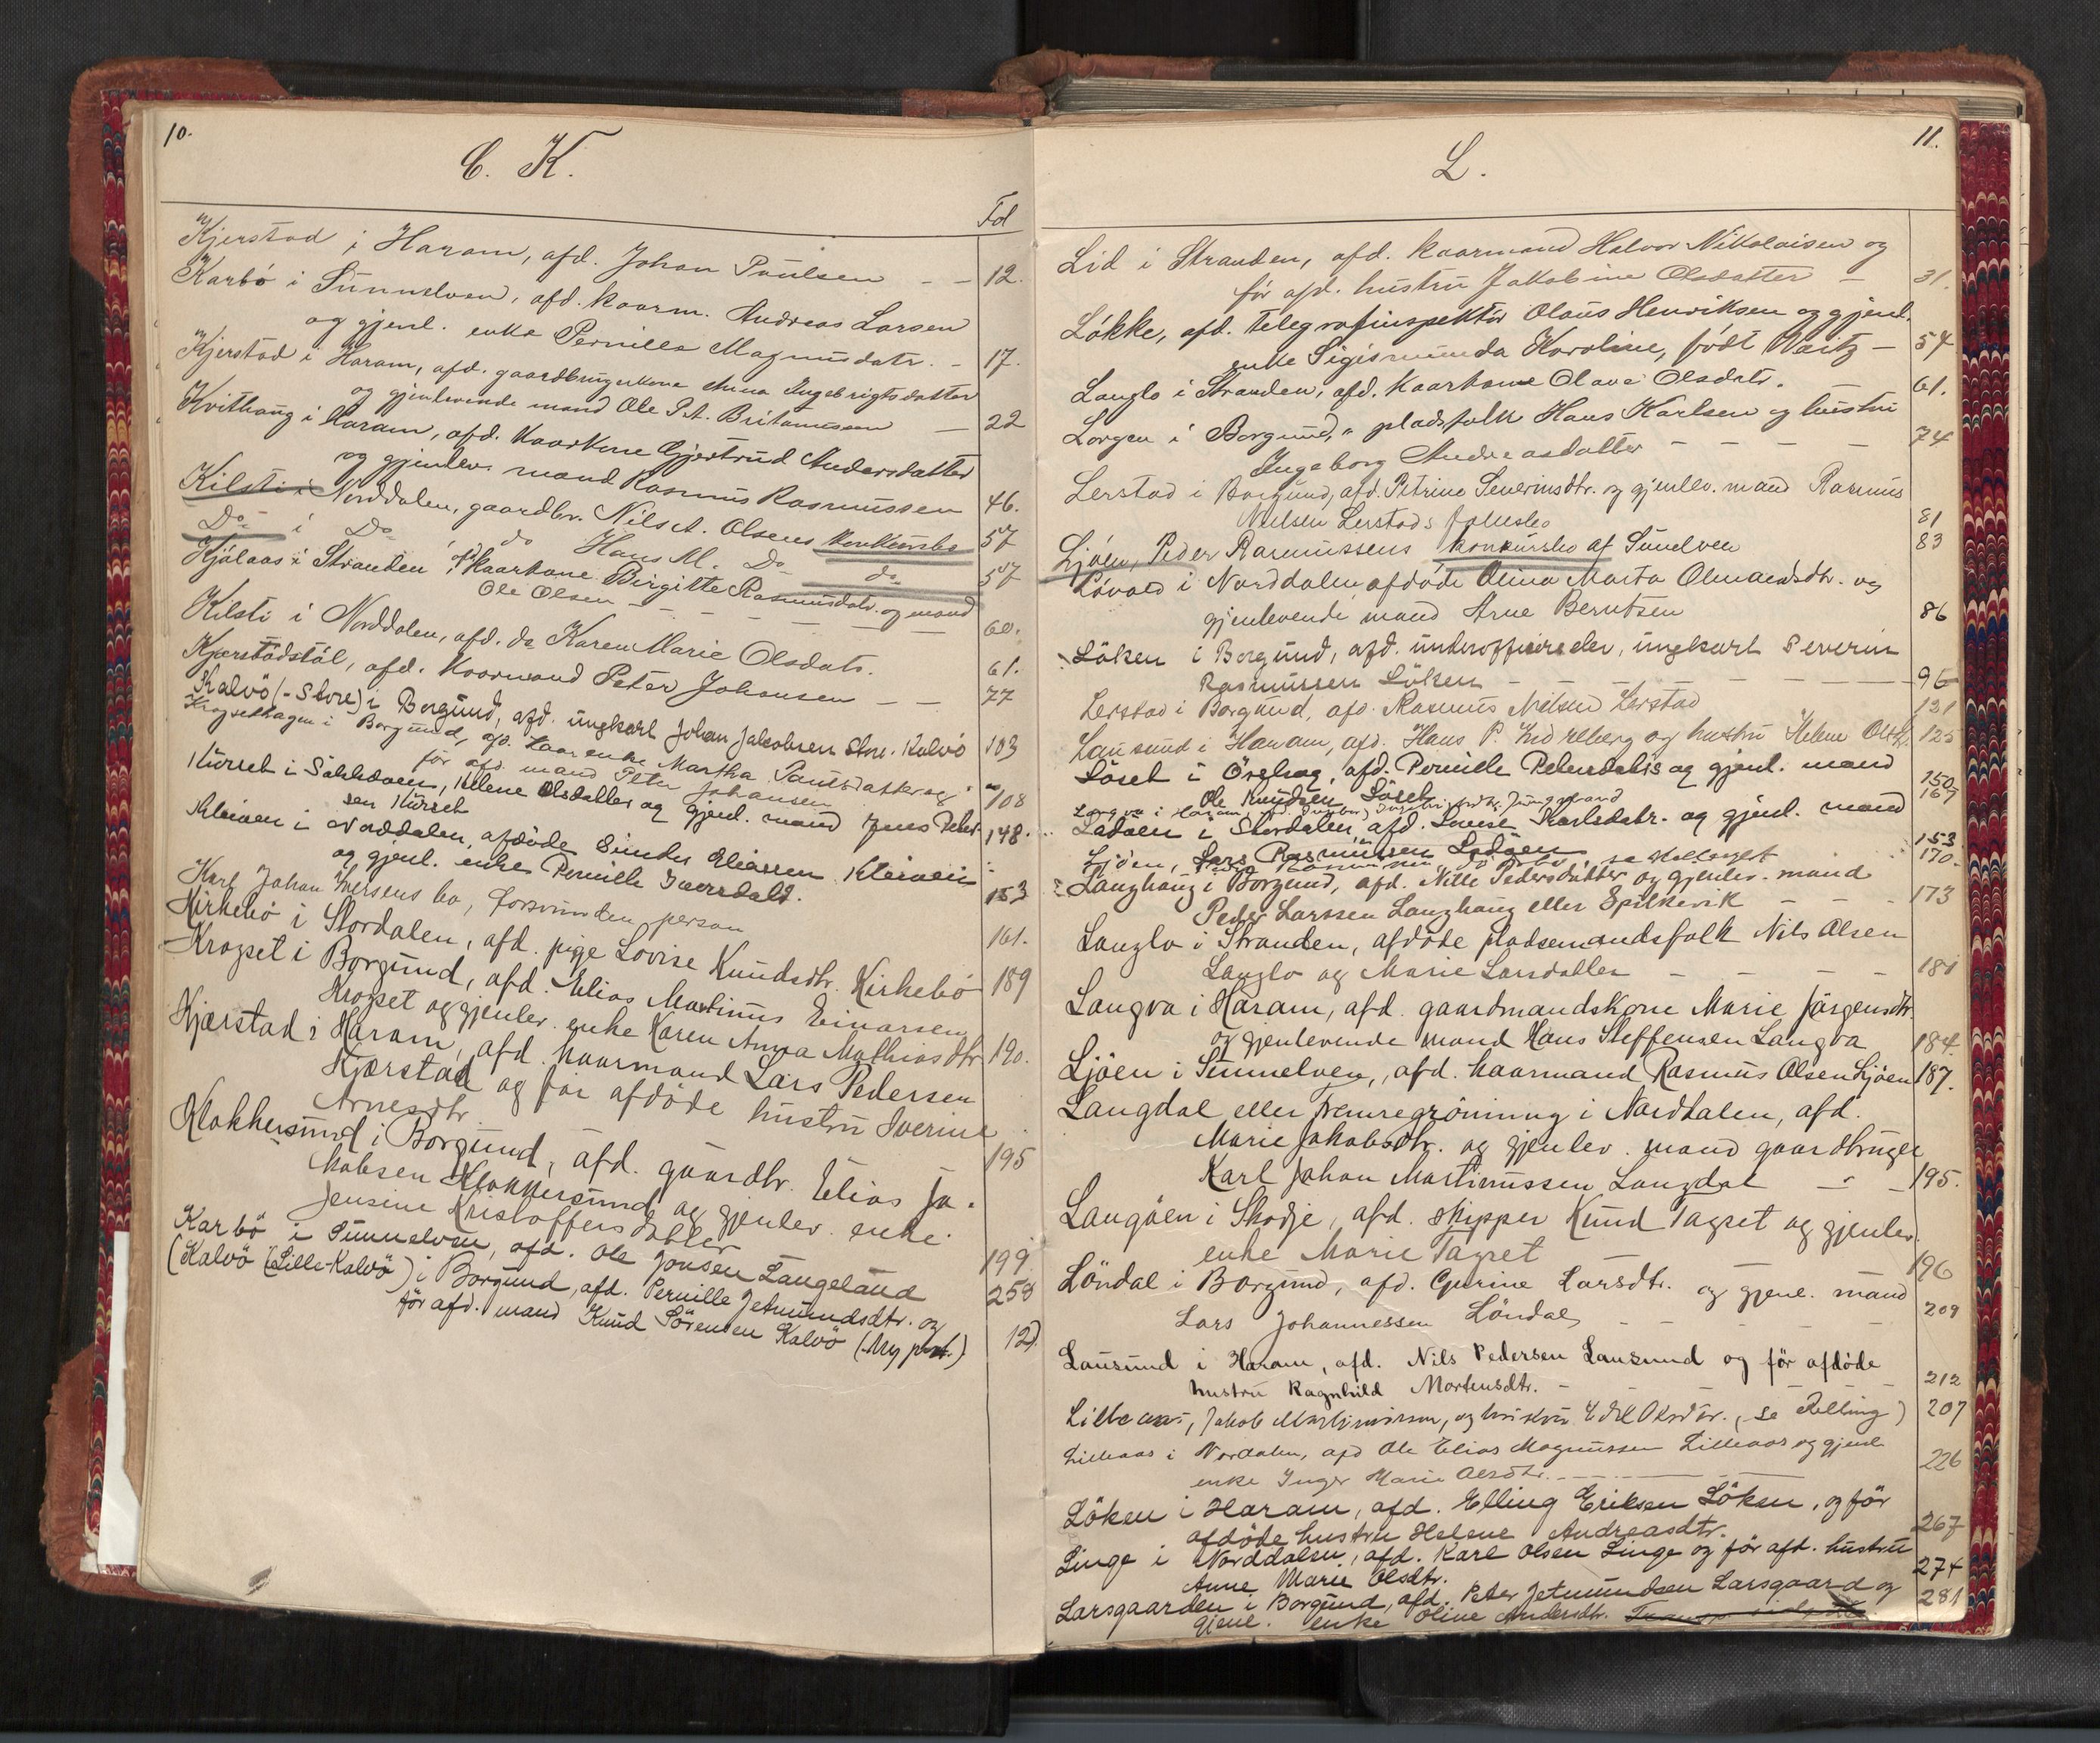 10.
C. K.
Fol
Kjerstad i Haram, afd. Johan Paulsen - - 12.
Karbö i Sunnelven, afd. kaarm. Andreas Larsen
og gjenl. enke Pernille Magnusdatr. - 17.
Kjerstad i Haram, afd. gaardbrugerkone Anna Ingebrigtsdatter
og gjenlevende mand Ole P. A. Britanussen - 22
Kvithaug i Haram, afd. Kaarkone Gjertrud Andersdatter
og gjenlev. mand Rasmus Rasmussen 46.
Kilsti i Norddalen, gaardbr. Nils A. Olsens konkursbo 57
Do i Do do Hans M. Do do 57
Kjölaas i Stranden, afd. kaarkone Birgitte Rasmusdatr. og mand
Ole Olsen - - - - - 60.
Kilsti i Norddalen, afd. do Karen Marie Olsdatr. 61.
Kjærstadstöl, afd. Kaarmand Peter Johansen - - 77
Kalvö (-Store) i Borgund, afd. ungkarl Johan Jakobsen Store-Kalvö 103
Krogsethagen i Borgund, afd. kaarenke Martha Paulsdatter og
før afd. mand Peter Johansen 108
Kurset i Søkkelven, Helene Olsdatter og gjenl. mand Jens Peter-
sen Kurset 148.
Kleiven i Norddalen, afdøde Sindre Eliassen Kleiven
og gjenl. enke Pernille Iversdatr. 153
Karl Johan Iversens bo, forsvunden person 161.
Kirkebö i Stordalen, afd. pige Lovise Knudsdtr. Kirkebö 189
Krogset i Borgund, afd. Elias Martinus Einarsen
Krogset og gjenlev. enke Karen Anna Mathiasdtr 190.
Kjærstad i Haram, afd. kaarmand Lars Pedersen
Kjærstad og før afdøde hustru Iverine
Arnesdtr. 195
Klokkersund i Borgund, afd. gaardbr. Elias Ja-
kobsen Klokkersund og gjenlev. enke
Jensine Kristoffersdatter 199.
Karbö i Sunnelven, afd. Ole Jonsen Langeland 258
(Kalvö (Lille-Kalvö) i Borgund, afd. Pernille Jetmundsdtr. og
før afd. mand Knud Sörensen Kalvö (Ny prot.) 12)
11.
L.
Lid i Stranden, afd. kaarmand Halvor Nikolaisen og
før afd. hustru Jakobine Olsdatter - 31.
Løkke, afd. telegrafinspektør Olaus Henriksen og gjenl.
enke Sigismunda Karoline, født Waitz - 54
Langlo i Stranden, afd. Kaarkone Olave Olsdatr. - 61.
Lorgen i Borgund, " pladsfolk Hans Karlsen og hustru
Ingeborg Andreasdatter - - - - 74
Lerstad i Borgund, afd. Petrine Severinsdtr. og gjenlev. mand Rasmus
Nielsen Lerstads fællesbo 81
Ljøen, Peder Rasmussens konkursbo af Sunelven 83
Løvold i Norddalen, afdøde Olina Marta Olmandsdtr. og
gjenlevende mand Arne Berntsen 86
Løken i Borgund, afd. underofficerselev, ungkarl Severin
Rasmussen Løken - - - - - 96
Lerstad i Borgund, afd. Rasmus Nielsen Lerstad 121
Lausund i Haram, afd. Hans P. og hustru Helene Olsdtr. 125
Løset i Ørskog, afd. Pernille Petersdatr. og gjenl. mand
Ole Knudsen Løset 150
Langva i Haram, 167
Ladøen i Stordalen, afd. Lovise Karlsdatr. og gjenl. mand
Lars Rasmussen Ladøen 153
Ljøen, 170.
Langhaug i Borgund, afd. Nille Pedersdatter og gjenlev. mand
Peder Larssen Langhaug eller Spilkevik - - - 173
Langlo i Stranden, afdøde pladsemandsfolk Nils Olsen
Langlo og Marie Larsdatter - - - - 181
Langva i Haram, afd. gaardmandskone Marie Jørgensdtr.
og gjenlevende mand Hans Steffensen Langva 184.
Ljøen i Sunnelven, afd. kaarmand Rasmus Olsen Ljøen 187.
Langdal eller Fremregrøning i Norddalen, afd.
Marie Jakobsdtr. og gjenlev. mand gaardbruger
Karl Johan Martinussen Langdal - - 195.
Langøen i Skodje, afd. skipper Knud Tagset og gjenlev.
enke Marie Tagset 196
Løndal i Borgund, afd. Gurine Larsdtr. og gjenl. mand
Lars Johannessen Løndal - - - - 209
Lausund i Haram, afd. Nils Pedersen Lausund og før afdøde
hustru Ragnhild Mortensdtr. - - - - 212
Lilleaas, Jakob Martinussen, og hustru Eli Olsdtr. (se Relling) 207
Lilleaas i Nordalen, afd Ole Elias Magnussen Lilleaas og gjenl
enke Inger Marie Olsdtr. - - - - 226
Løken i Haram, afd. Elling Eriksen Løken, og før
afdøde hustru Helene Andreasdtr. 267
Linge i Norddalen, afd. Karl Olsen Linge og før afd. hustru
Anne Marie Olsdtr. 274
Larsgaarden i Borgund, afd. Peter Jetmundsen Larsgaard og 281
gjenl. enke Oline Andersdtr.